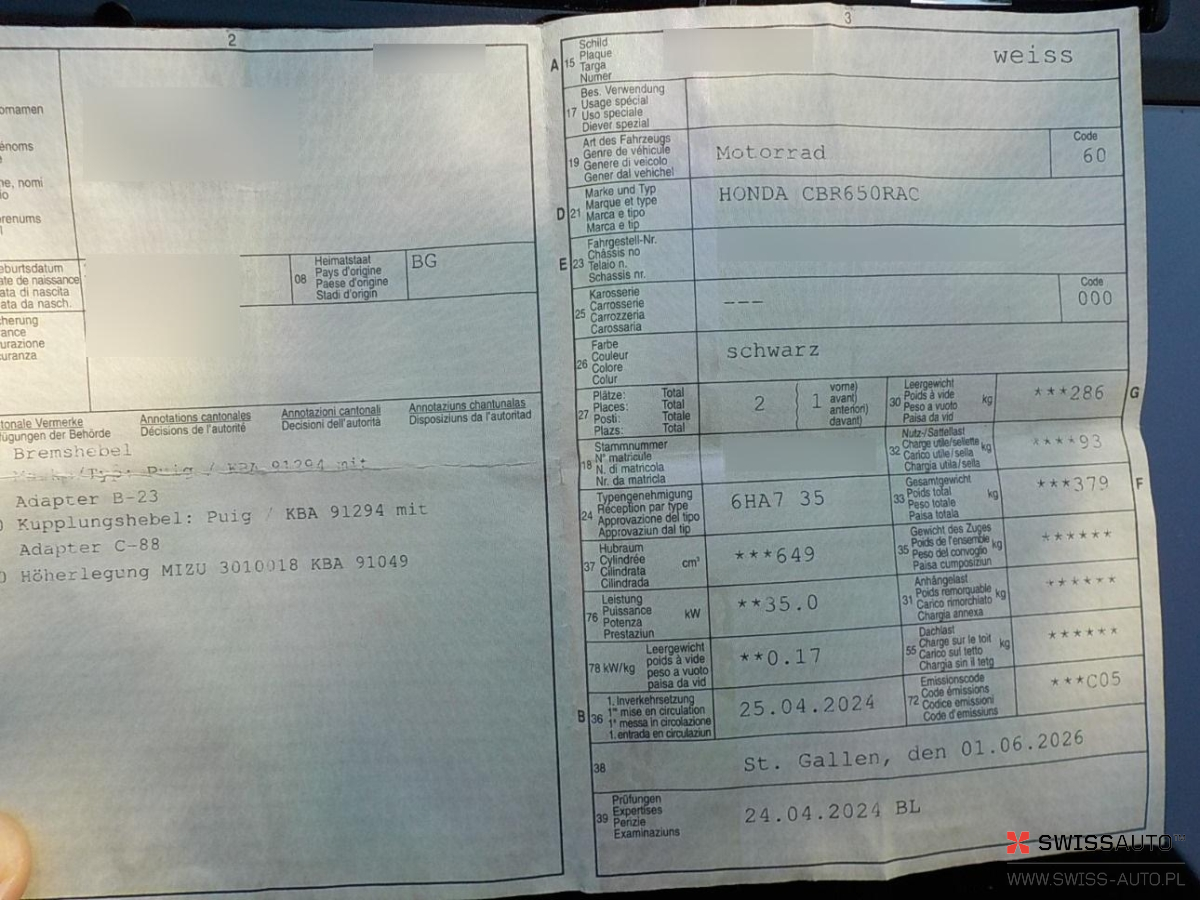 2
ornamen
énoms
e
ne, nomi
io
renums
l
eburtsdatum
ate de naissance
ata di nascita
ata da nasch.
08
Heimatstaat
Pays d'origine
Paese d'origine
Stadi d'origin
BG
cherung
rance
urazione
curanza
tonale Vermerke
fügungen der Behörde
Annotations cantonales
Décisions de l'autorité
Annotazioni cantonali
Decisioni dell'autorità
Annotaziuns chantunalas
Disposiziuns da l'autoritad
Bremshebel
Marke/Typ: Puig / KBA 91294 mit
Adapter B-23
) Kupplungshebel: Puig / KBA 91294 mit
Adapter C-88
) Höherlegung MIZU 3010018 KBA 91049
3
A 15
Schild
Plaque
Targa
Numer
weiss
17
Bes. Verwendung
Usage spécial
Uso speciale
Diever spezial
19
Art des Fahrzeugs
Genre de véhicule
Genere di veicolo
Gener dal vehichel
Motorrad
Code
60
D 21
Marke und Typ
Marque et type
Marca e tipo
Marca e tip
HONDA CBR650RAC
E 23
Fahrgestell-Nr.
Châssis no
Telaio n.
Schassis nr.
25
Karosserie
Carrosserie
Carrozzeria
Carossaria
---
Code
000
26
Farbe
Couleur
Colore
Colur
schwarz
27
Plätze: Total
Places: Total
Posti: Totale
Plazs: Total
2
1
vorne)
avant)
anteriori)
davant)
30
Leergewicht
Poids à vide
Peso a vuoto
Paisa da vid
kg
***286
G
18
Stammnummer
N° matricule
N. di matricola
Nr. da matricla
32
Nutz-/Sattellast
Charge utile/sellette
Carico utile/sella
Chargia utila/sella
kg
****93
24
Typengenehmigung
Réception par type
Approvazione del tipo
Approvaziun dal tip
6HA7 35
33
Gesamtgewicht
Poids total
Peso totale
Paisa totala
kg
***379
F
37
Hubraum
Cylindrée
Cilindrata
Cilindrada
cm³
***649
35
Gewicht des Zuges
Poids de l'ensemble
Peso del convoglio
Paisa cumposiziun
kg
******
76
Leistung
Puissance
Potenza
Prestaziun
kW
**35.0
31
Anhängelast
Poids remorquable
Carico rimorchiato
Chargia annexa
kg
******
78 kW/kg
Leergewicht
poids à vide
peso a vuoto
paisa da vid
**0.17
55
Dachlast
Charge sur le toit
Carico sul tetto
Chargia sin il tetg
kg
******
B 36
1. Inverkehrsetzung
1re mise en circulation
1a messa in circolazione
1. entrada en circulaziun
25.04.2024
72
Emissionscode
Code émissions
Codice emissioni
Code d'emissiuns
***C05
38
St. Gallen, den 01.06.2026
39
Prüfungen
Expertises
Perizie
Examinaziuns
24.04.2024 BL
SWISSAUTO
WWW.SWISS-AUTO.PL